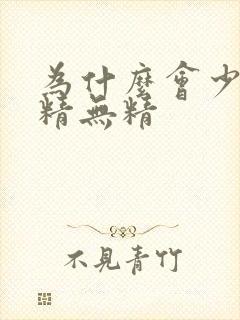 為什麼會少
精無精
不見青竹